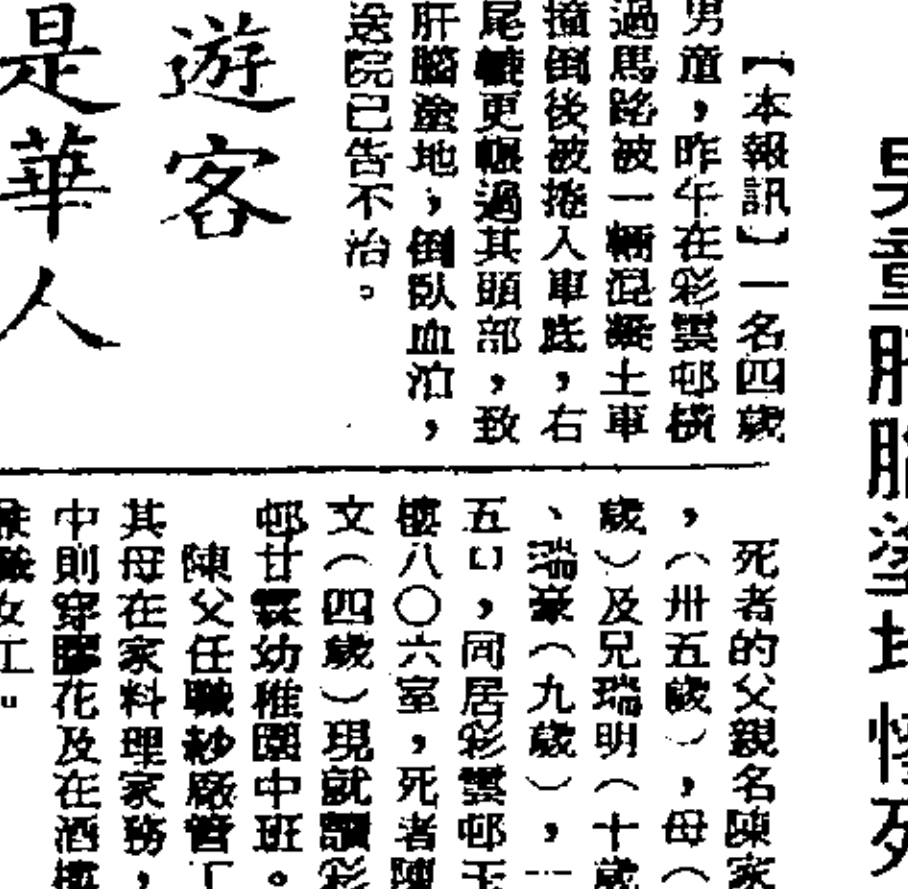 男童肝腦塗地慘死
【本報訊】一名四歲
男童,昨午在彩雲邨橫
過馬路被一輛混凝土車
撞倒後被捲入車底,右
尾轆更輾過其頭部,致
肝腦塗地,倒臥血泊,
送院已告不治。
遊客
是華人
死者的父親名陳家
,(卅五歲),母(
歲)及兄瑞明(十歲
、瑞豪(九歲),一
五口,同居彩雲邨玉
樓八〇六室,死者陳
文(四歲)現就讀彩
邨甘霖幼稚園中班。
陳父任職紗廠管工
其母在家料理家務,
中則穿膠花及在酒樓
女工。